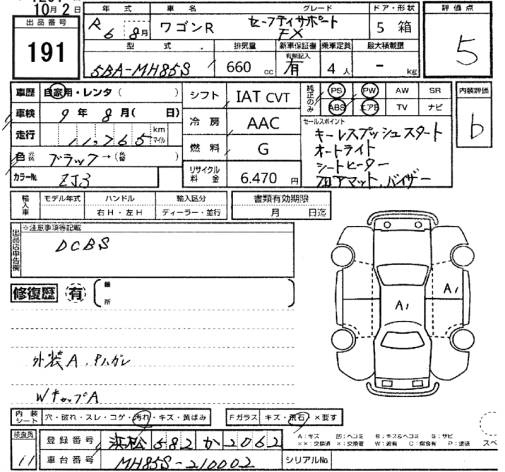 10月2日
出品番号
191
年式
R6 8月
車名
ワゴンR
グレード
セーフティサポート
FX
ドア・形状
5 箱
評価点
5
型式
5BA-MH85S
排気量
660 cc
新車保証書
有無記入
有
乗車定員
4人
最大積載量
- kg
車歴
自家用・レンタ( )
車検
9年8月( 日)
走行
11,765 km マイル
色
ブラック→(
カラーNo.
ZJ3
シフト
IAT CVT
冷房
AAC
燃料
G
リサイクル料金
6.470円
純正のみ
PS PW AW SR
ABS エアB TV ナビ
内装評価
b
セールスポイント
キーレスプッシュスタート
オートライト
シートヒーター
フロアマット、バイザー
輸入車
モデル年式
ハンドル
右H・左H
輸入区分
ディーラー・並行
書類有効期限
月 日迄
出品店申告欄
☆注意事項等記載
DCBS
修復歴 有
箇所
A1
A1
外装A
WキップA
内装シート
穴・破れ・スレ・コゲ・汚れ・キズ・黄ばみ
Fガラス
キズ・飛石・×要す
検査員
11
登録番号
浜松 582 か 2062
車台番号
MH85S-210002
シリアルNo.
スペ